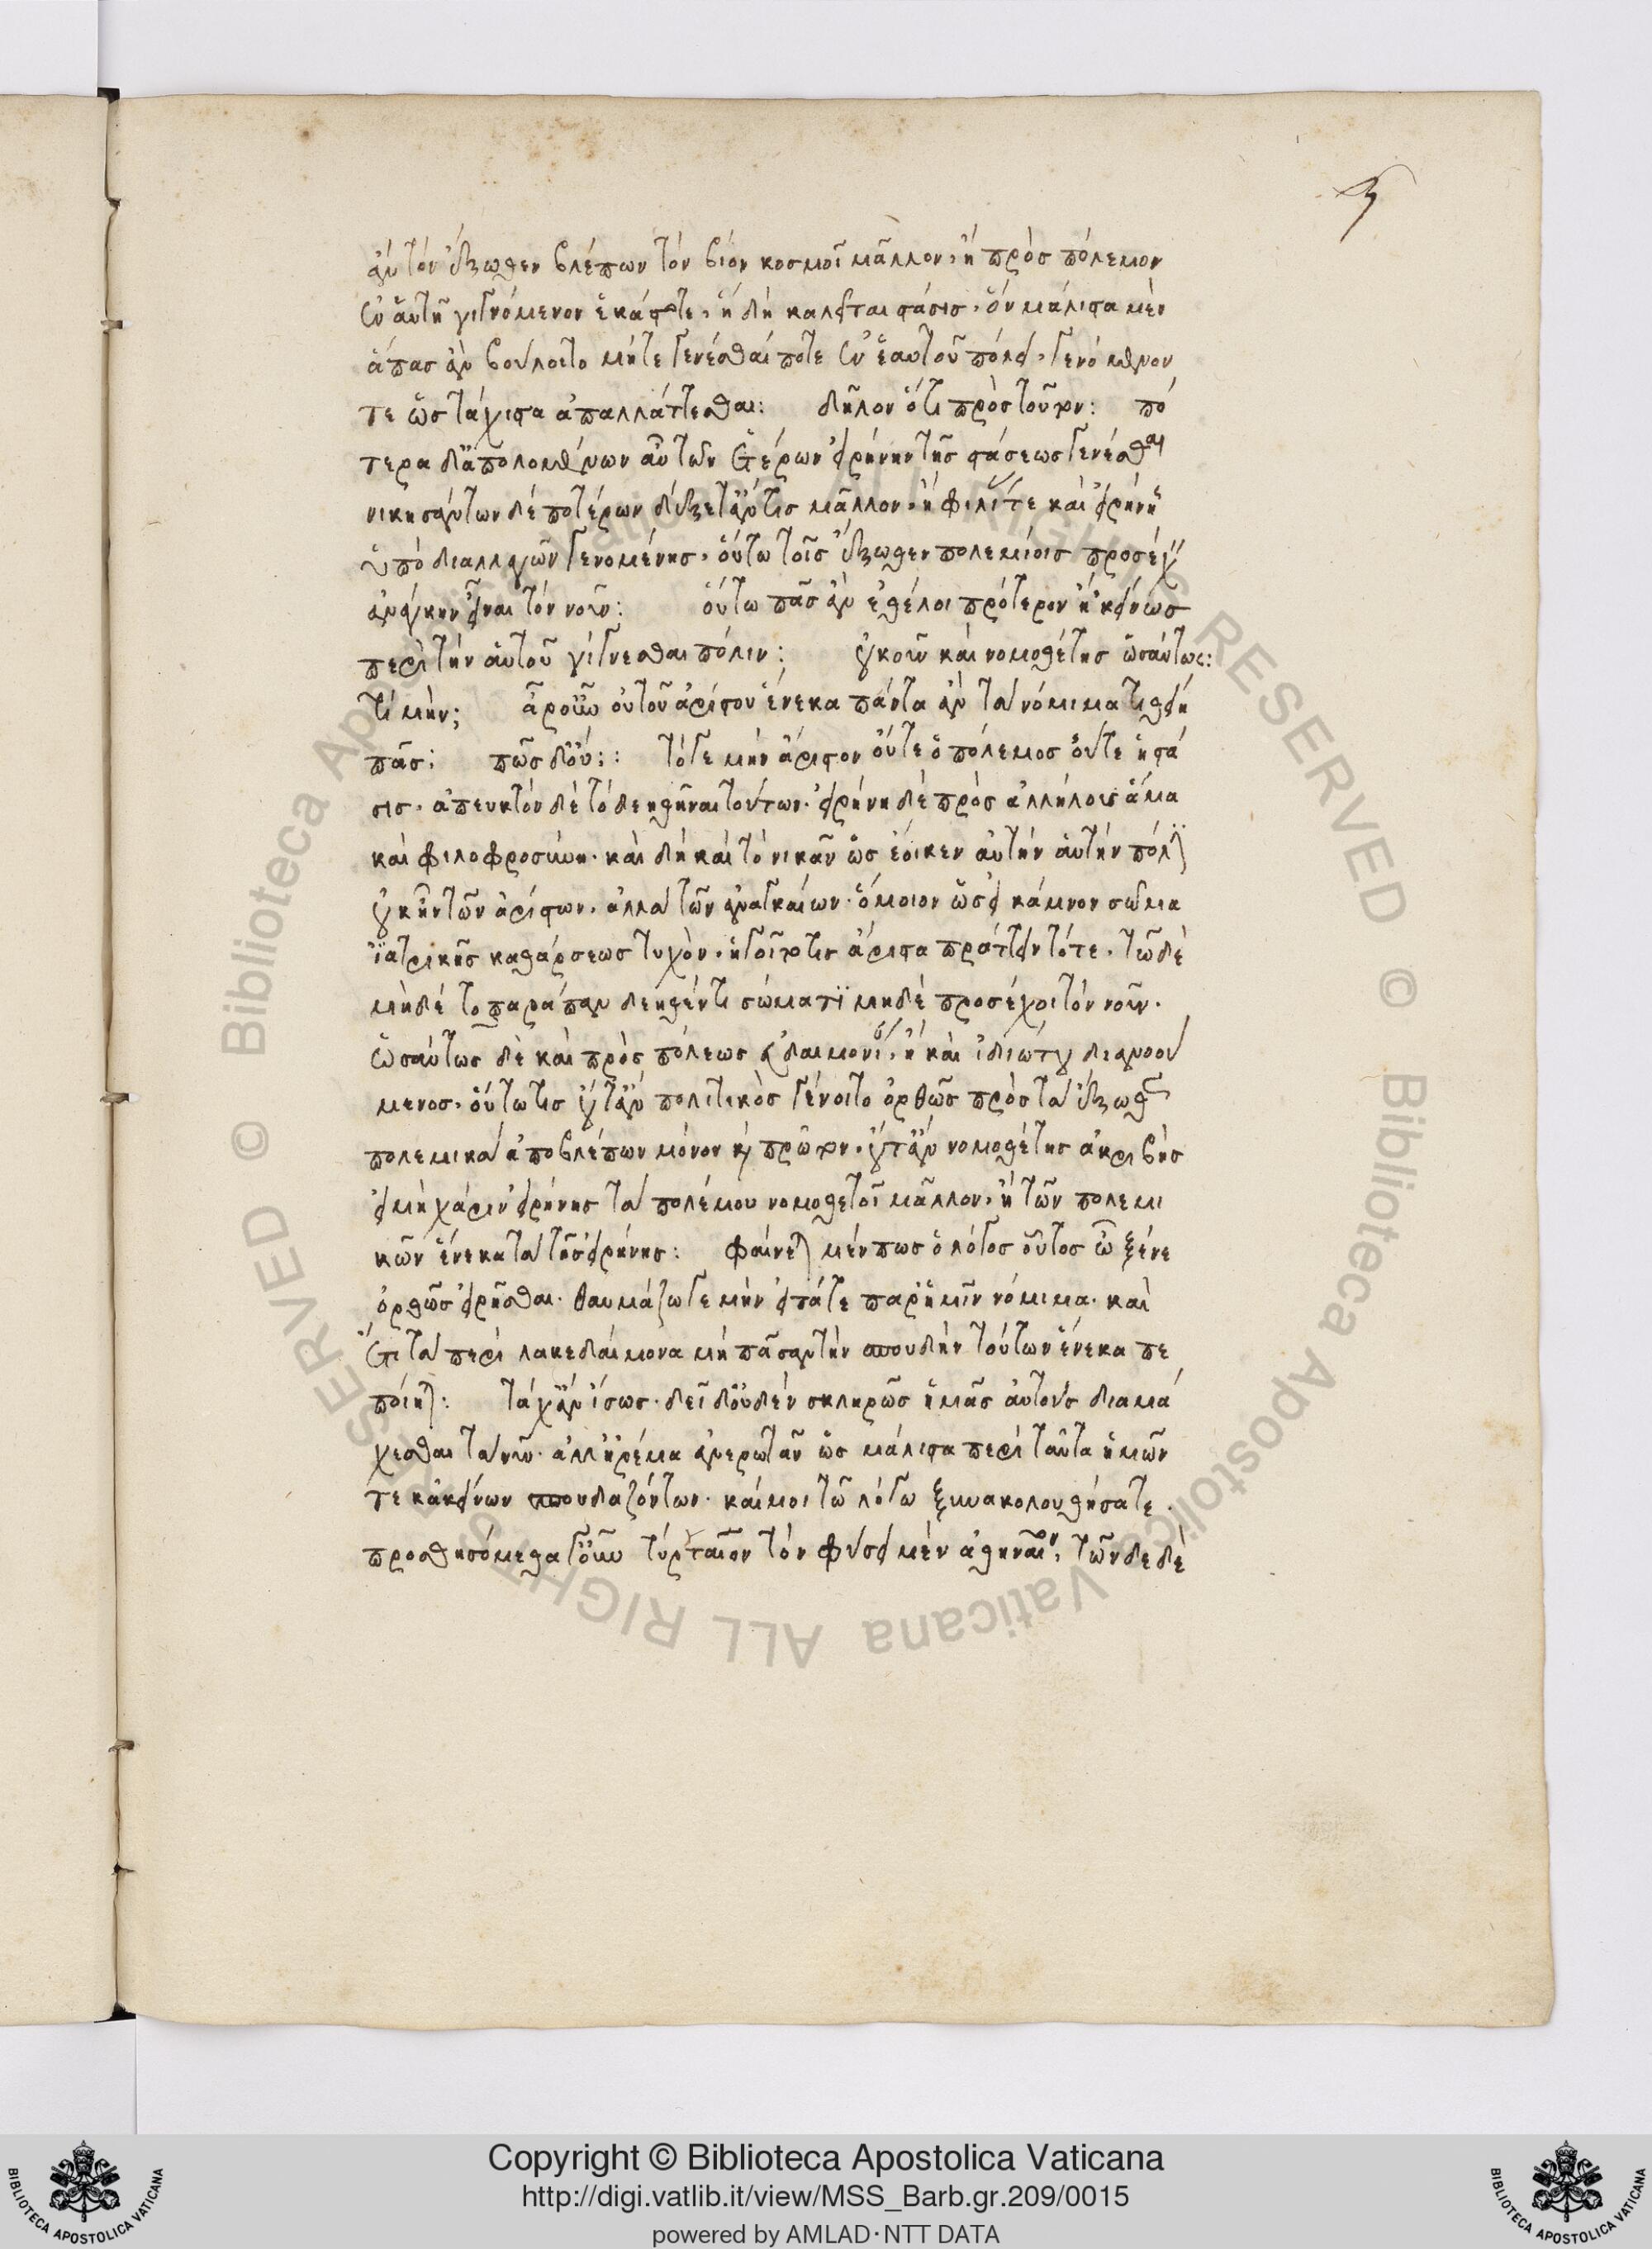 5
αὐτὸν ἔξωθεν βλέπων τὸν βίον κοσμοῖ μᾶλλον, ἢ πρὸς πόλεμον
ἐν αὐτῇ γιγνόμενον ἑκάστοτε, ἣ δὴ καλεῖται στάσις, ὃν μάλιστα μὲν
ἅπας ἂν βούλοιτο μήτε γενέσθαί ποτε ἐν ἑαυτοῦ πόλει, γενόμενον
τε ὡς τάχιστα ἀπαλλάττεσθαι: δῆλον ὅτι πρὸς τοῦτον: πό
τερα δὲ ἀπολομένων αὖ τῶν ἑτέρων εἰρήνην τῆς στάσεως γενέσθαι
νικησάντων δὲ ποτέρων δέξαιτ' ἄν τις μᾶλλον, ἢ φιλίας τε καὶ εἰρήνης
ὑπὸ διαλλαγῶν γενομένης, οὕτω τοῖς ἔξωθεν πολεμίοις προσέχειν
ἀνάγκην εἶναι τὸν νοῦν: οὕτω πᾶς ἂν ἐθέλοι πρότερον ἢ 'κείνως
περὶ τὴν αὑτοῦ γίγνεσθαι πόλιν: οὐκοῦν καὶ νομοθέτης ὡσαύτως:
τί μήν; ἆρ' οὖν οὐ τοῦ ἀρίστου ἕνεκα πάντα ἂν τὰ νόμιμα τιθείη
πᾶς: πῶς δ' οὔ: τό γε μὴν ἄριστον οὔτε ὁ πόλεμος οὔτε ἡ στά
σις. ἀπευκτὸν δὲ τὸ δεηθῆναι τούτων. εἰρήνη δὲ πρὸς ἀλλήλους ἅμα
καὶ φιλοφροσύνη. καὶ δὴ καὶ τὸ νικᾶν ὡς ἔοικεν αὐτὴν αὑτὴν πόλιν
οὐκ ἦν τῶν ἀρίστων. ἀλλὰ τῶν ἀναγκαίων. ὅμοιον ὡς εἰ κάμνον σῶμα
ἰατρικῆς καθάρσεως τυχὸν. ἡγοῖτό τις ἄριστα πράττειν τότε. τῷ δὲ
μηδὲ τὸ παράπαν δεηθέντι σώματι μηδὲ προσέχοι τὸν νοῦν.
ὡσαύτως δὲ καὶ πρὸς πόλεως εὐδαιμονίαν, ἢ καὶ ἰδιώτου διανοού
μενος. οὕτω τις οὔτ' ἂν πολιτικὸς γένοιτο ὀρθῶς πρὸς τὰ ἔξωθεν
πολεμικὰ ἀποβλέπων μόνον καὶ πρῶτον. οὔτ' ἂν νομοθέτης ἀκριβὴς
εἰ μὴ χάριν εἰρήνης τὰ πολέμου νομοθετοῖ μᾶλλον, ἢ τῶν πολεμι
κῶν ἕνεκα τὰ τῆς εἰρήνης: φαίνεται μέν πως ὁ λόγος οὗτος ὦ ξένε
ὀρθῶς εἰρῆσθαι. θαυμάζω γε μὴν εἰ τά τε παρ' ἡμῖν νόμιμα. καὶ
ἔτι τὰ περὶ λακεδαίμονα μὴ πᾶσαν τὴν σπουδὴν τούτων ἕνεκα πε
ποίηται: τάχ' ἂν ἴσως. δεῖ δ' οὐδὲν σκληρῶς ἡμᾶς αὐτοὺς διαμά
χεσθαι τὰ νῦν. ἀλλ' ἠρέμα ἀνερωτᾶν ὡς μάλιστα περὶ ταῦτα ἡμῶν
τε κἀκείνων σπουδαζόντων. καί μοι τῷ λόγῳ ξυνακολουθήσατε.
προσθησόμεθα γοῦν τύρταιον τὸν φύσει μὲν ἀθηναῖον, τῶνδε δὲ
Copyright © Biblioteca Apostolica Vaticana
http://digi.vatlib.it/view/MSS_Barb.gr.209/0015
powered by AMLAD·NTT DATA